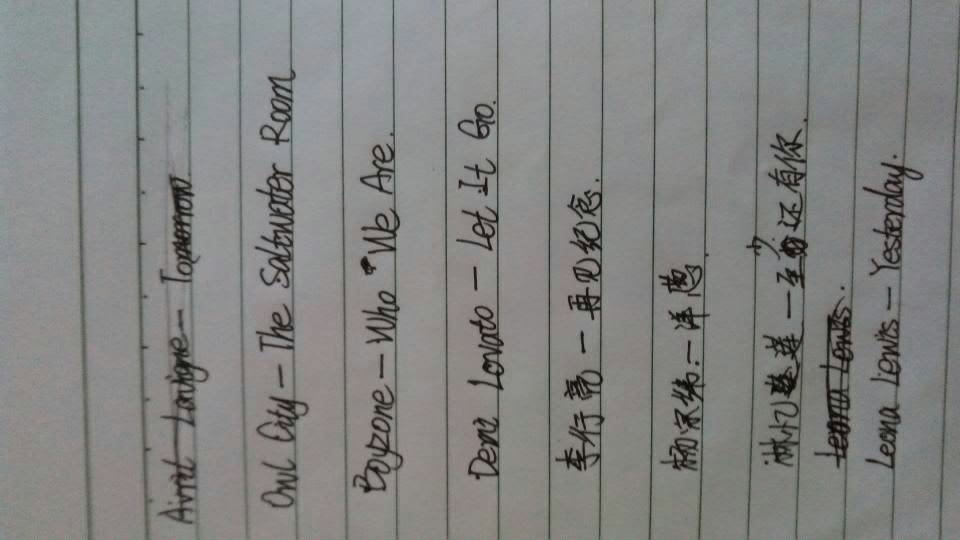 Avril Lavigne - Tomorrow
Owl City - The Saltwater Room
Boyzone - Who We Are.
Demi Lovato - Let It Go.
李行亮 - 再见纪念.
杨宗纬 - 洋葱.
林忆莲 - 至少还有你.
Leona Lewis.
Leona Lewis - Yesterday.